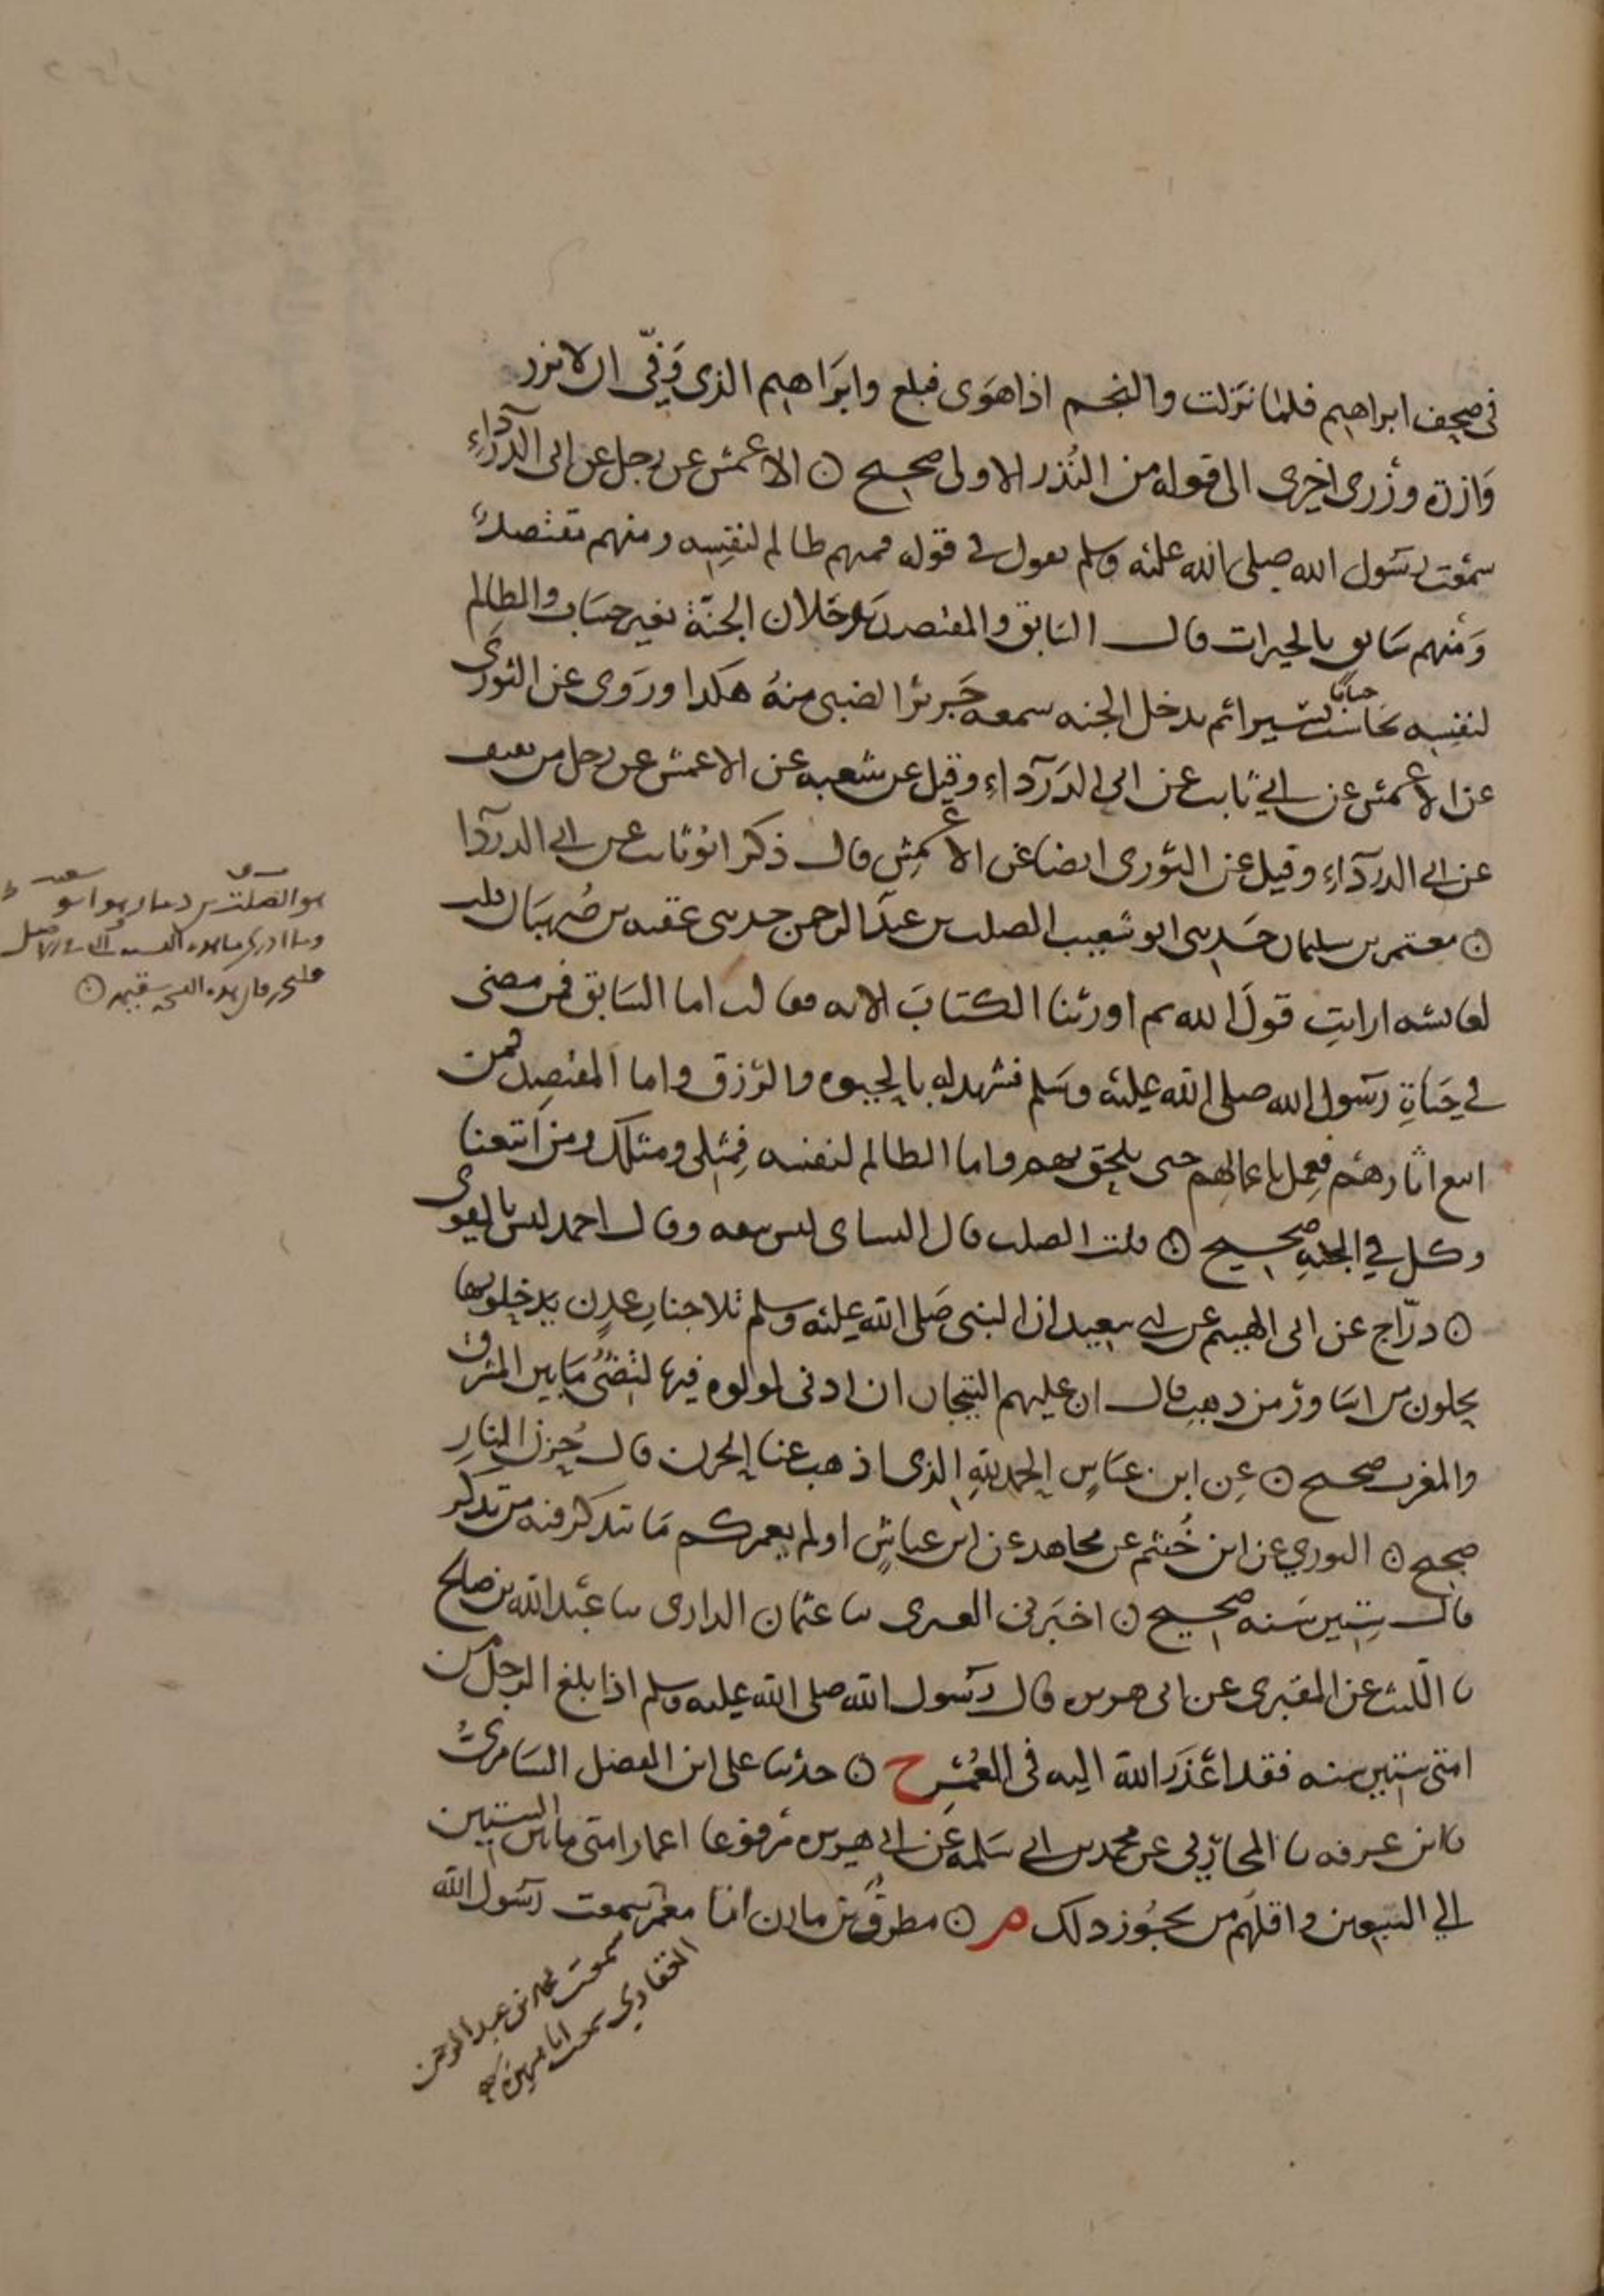 في صحف ابراهيم فلما نزلت والنجم اذا هوى فبلغ وابراهيم الذي وَفّى ان لا تزر
وازرة وزرى اخرى الى قوله من النُذر الاولى صحيح ن الاعمش عن رجل عن ابي الدرداء
سمعت رسول الله صلى الله عليه وسلم يقول في قوله فمنهم ظالم لنفسه ومنهم مقتصد
ومنهم سابق بالخيرات قال السابق والمقتصد يدخلان الجنة بغير حساب والظالم
لنفسه يحاسب حسابا يسيرا ثم يدخل الجنه سمعه جرير الضبي منه هكذا وروى عن الثورى
عن الاعمش عن ابي ثابت عن ابي الدرداء وقيل عن شعبه عن الاعمش عن رجل من ثقيف
عن ابي الدرداء وقيل عن الثورى ايضا عن الاعمش قال ذكر ابو ثابت عن ابي الدردا
ن معتمر بن سليمان حدثني ابو شعيب الصلت بن عبد الرحمن حدثني عقبه بن صُهبان قلت
لعايشه ارايتِ قولَ الله ثم اورثنا الكتاب الايه فقالت اما السابق فمن مضى
في حياة رسول الله صلى الله عليه وسلم فشهد له بالحيوه والرزق واما المقتصد فمن
اتبع اثارهم فعمل باعمالهم حتى يلحق بهم واما الظالم لنفسه فمثلي ومثلك ومن اتبعنا
وكل في الجنه صحيح ن قلت الصلت قال النساي ليس بثقه وقال احمد ليس بالقوى
ن درّاج عن ابي الهيثم عن ابي سعيد ان النبي صلى الله عليه وسلم تلا جنات عدن يدخلونها
يحلون من اساور من ذهب قال ان عليهم التيجان ان ادنى لولوه فيها لتضئ ما بين المشرق
والمغرب صحيح ن عن ابن عباس الحمد لله الذي اذهب عنا الحزن قال حزن النار
صحيح ن الثوري عن ابن خُثيم عن مجاهد عن ابن عباس اولم يعمركم ما يتذكر فيه من تذكر
قال ستين سنه صحيح ن اخبرني العنزي ثنا عثمان الدارمي ثنا عبد الله بن صالح
نا الليث عن المقبري عن ابي هريره قال رسول الله صلى الله عليه وسلم اذا بلغ الرجل من
امتي ستين سنه فقد اعذر الله اليه في العُمُر خ ن حدثنا علي ابن الفضل السامري
نا ابن عرفه نا المحاربي عن محمد بن ابي سلمه عن ابي هريره مرفوعا اعمار امتي ما بين الستين
الي السبعين واقلهم من يجوز ذلك م ن مطرف بن مازن انا معمر سمعت رسول الله
سمعت محمد بن عبد الرحمن
الغفاري سمعت ابا هريرة
هو الصلت بن دينار